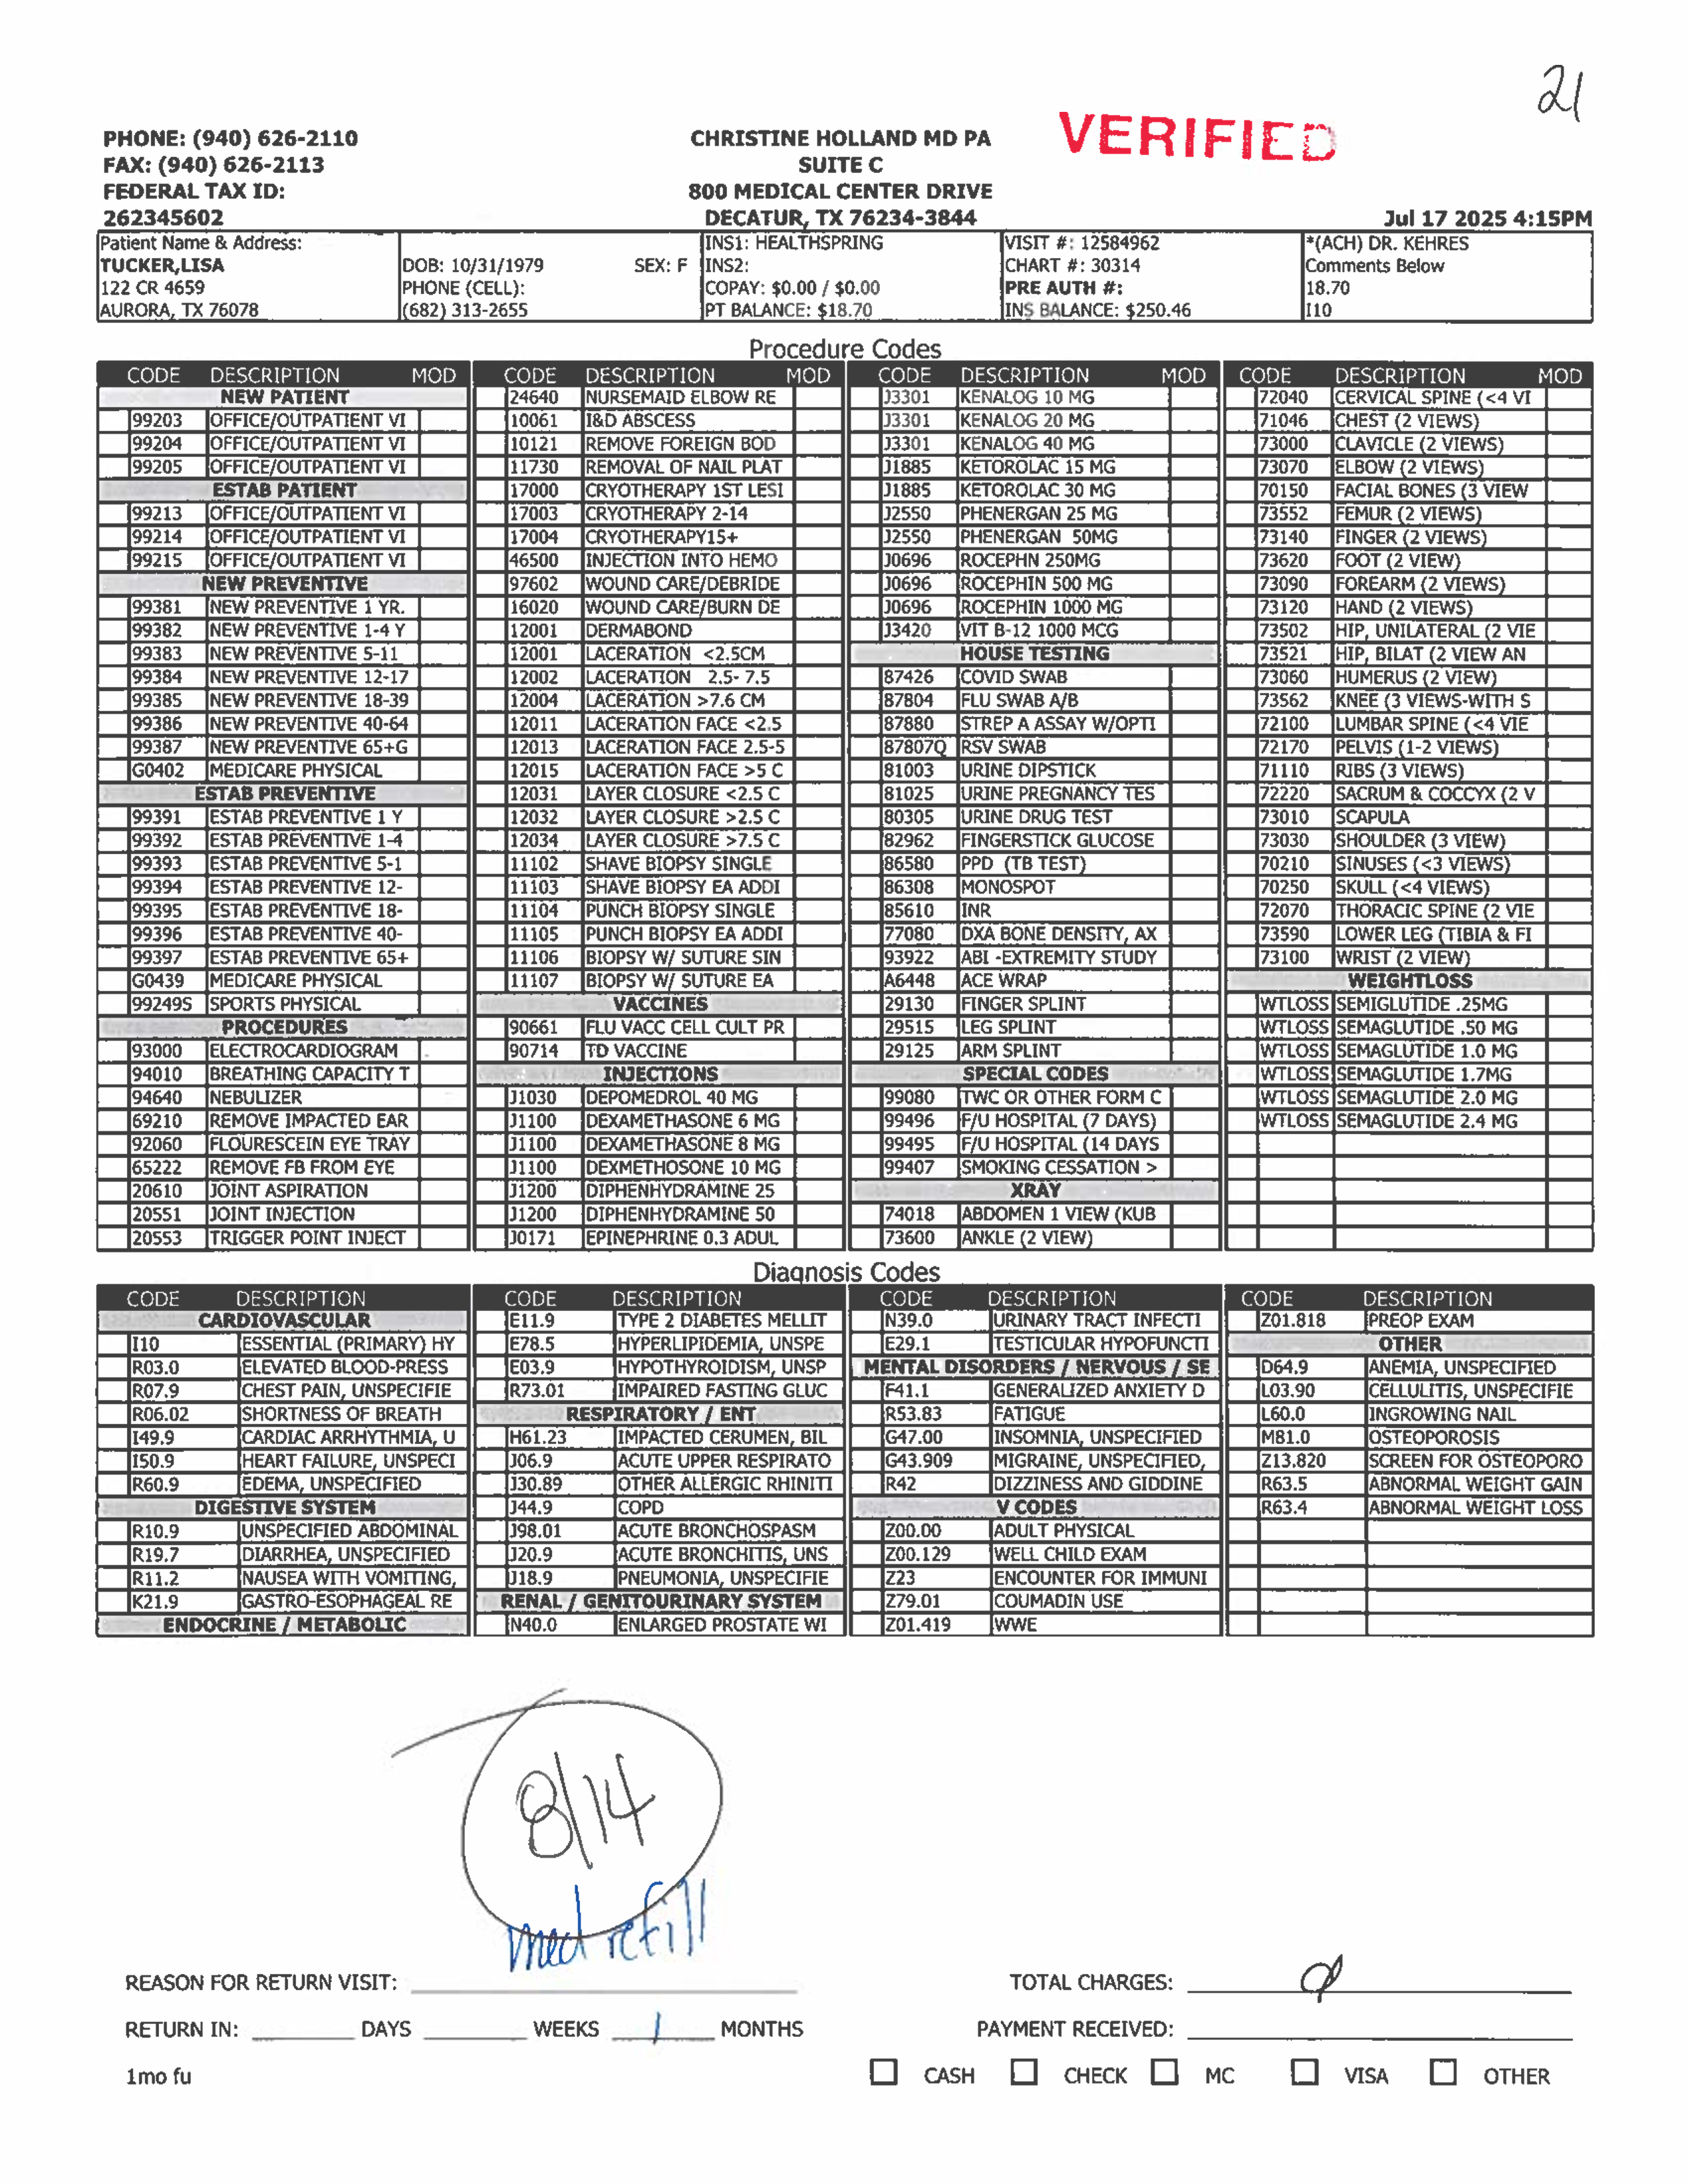 21
PHONE: (940) 626-2110
FAX: (940) 626-2113
FEDERAL TAX ID:
262345602
CHRISTINE HOLLAND MD PA
SUITE C
800 MEDICAL CENTER DRIVE
DECATUR, TX 76234-3844
VERIFIED
Jul 17 2025 4:15PM
Patient Name & Address:
TUCKER,LISA
122 CR 4659
AURORA, TX 76078
DOB: 10/31/1979 SEX: F
PHONE (CELL):
(682) 313-2655
INS1: HEALTHSPRING
INS2:
COPAY: $0.00 / $0.00
PT BALANCE: $18.70
VISIT #: 12584962
CHART #: 30314
PRE AUTH #:
INS BALANCE: $250.46
*(ACH) DR. KEHRES
Comments Below
18.70
I10
Procedure Codes
CODE DESCRIPTION MOD
NEW PATIENT
99203 OFFICE/OUTPATIENT VI
99204 OFFICE/OUTPATIENT VI
99205 OFFICE/OUTPATIENT VI
ESTAB PATIENT
99213 OFFICE/OUTPATIENT VI
99214 OFFICE/OUTPATIENT VI
99215 OFFICE/OUTPATIENT VI
NEW PREVENTIVE
99381 NEW PREVENTIVE 1 YR.
99382 NEW PREVENTIVE 1-4 Y
99383 NEW PREVENTIVE 5-11
99384 NEW PREVENTIVE 12-17
99385 NEW PREVENTIVE 18-39
99386 NEW PREVENTIVE 40-64
99387 NEW PREVENTIVE 65+G
G0402 MEDICARE PHYSICAL
ESTAB PREVENTIVE
99391 ESTAB PREVENTIVE 1 Y
99392 ESTAB PREVENTIVE 1-4
99393 ESTAB PREVENTIVE 5-1
99394 ESTAB PREVENTIVE 12-
99395 ESTAB PREVENTIVE 18-
99396 ESTAB PREVENTIVE 40-
99397 ESTAB PREVENTIVE 65+
G0439 MEDICARE PHYSICAL
99249S SPORTS PHYSICAL
PROCEDURES
93000 ELECTROCARDIOGRAM
94010 BREATHING CAPACITY T
94640 NEBULIZER
69210 REMOVE IMPACTED EAR
92060 FLOURESCEIN EYE TRAY
65222 REMOVE FB FROM EYE
20610 JOINT ASPIRATION
20551 JOINT INJECTION
20553 TRIGGER POINT INJECT
CODE DESCRIPTION MOD
24640 NURSEMAID ELBOW RE
10061 I&D ABSCESS
10121 REMOVE FOREIGN BOD
11730 REMOVAL OF NAIL PLAT
17000 CRYOTHERAPY 1ST LESI
17003 CRYOTHERAPY 2-14
17004 CRYOTHERAPY15+
46500 INJECTION INTO HEMO
97602 WOUND CARE/DEBRIDE
16020 WOUND CARE/BURN DE
12001 DERMABOND
12001 LACERATION <2.5CM
12002 LACERATION 2.5- 7.5
12004 LACERATION >7.6 CM
12011 LACERATION FACE <2.5
12013 LACERATION FACE 2.5-5
12015 LACERATION FACE >5 C
12031 LAYER CLOSURE <2.5 C
12032 LAYER CLOSURE >2.5 C
12034 LAYER CLOSURE >7.5 C
11102 SHAVE BIOPSY SINGLE
11103 SHAVE BIOPSY EA ADDI
11104 PUNCH BIOPSY SINGLE
11105 PUNCH BIOPSY EA ADDI
11106 BIOPSY W/ SUTURE SIN
11107 BIOPSY W/ SUTURE EA
VACCINES
90661 FLU VACC CELL CULT PR
90714 TD VACCINE
INJECTIONS
J1030 DEPOMEDROL 40 MG
J1100 DEXAMETHASONE 6 MG
J1100 DEXAMETHASONE 8 MG
J1100 DEXMETHOSONE 10 MG
J1200 DIPHENHYDRAMINE 25
J1200 DIPHENHYDRAMINE 50
J0171 EPINEPHRINE 0.3 ADUL
CODE DESCRIPTION MOD
J3301 KENALOG 10 MG
J3301 KENALOG 20 MG
J3301 KENALOG 40 MG
J1885 KETOROLAC 15 MG
J1885 KETOROLAC 30 MG
J2550 PHENERGAN 25 MG
J2550 PHENERGAN 50MG
J0696 ROCEPHN 250MG
J0696 ROCEPHIN 500 MG
J0696 ROCEPHIN 1000 MG
J3420 VIT B-12 1000 MCG
HOUSE TESTING
87426 COVID SWAB
87804 FLU SWAB A/B
87880 STREP A ASSAY W/OPTI
87807Q RSV SWAB
81003 URINE DIPSTICK
81025 URINE PREGNANCY TES
80305 URINE DRUG TEST
82962 FINGERSTICK GLUCOSE
86580 PPD (TB TEST)
86308 MONOSPOT
85610 INR
77080 DXA BONE DENSITY, AX
93922 ABI -EXTREMITY STUDY
A6448 ACE WRAP
29130 FINGER SPLINT
29515 LEG SPLINT
29125 ARM SPLINT
SPECIAL CODES
99080 TWC OR OTHER FORM C
99496 F/U HOSPITAL (7 DAYS)
99495 F/U HOSPITAL (14 DAYS
99407 SMOKING CESSATION >
XRAY
74018 ABDOMEN 1 VIEW (KUB
73600 ANKLE (2 VIEW)
CODE DESCRIPTION MOD
72040 CERVICAL SPINE (<4 VI
71046 CHEST (2 VIEWS)
73000 CLAVICLE (2 VIEWS)
73070 ELBOW (2 VIEWS)
70150 FACIAL BONES (3 VIEW
73552 FEMUR (2 VIEWS)
73140 FINGER (2 VIEWS)
73620 FOOT (2 VIEW)
73090 FOREARM (2 VIEWS)
73120 HAND (2 VIEWS)
73502 HIP, UNILATERAL (2 VIE
73521 HIP, BILAT (2 VIEW AN
73060 HUMERUS (2 VIEW)
73562 KNEE (3 VIEWS-WITH S
72100 LUMBAR SPINE (<4 VIE
72170 PELVIS (1-2 VIEWS)
71110 RIBS (3 VIEWS)
72220 SACRUM & COCCYX (2 V
73010 SCAPULA
73030 SHOULDER (3 VIEW)
70210 SINUSES (<3 VIEWS)
70250 SKULL (<4 VIEWS)
72070 THORACIC SPINE (2 VIE
73590 LOWER LEG (TIBIA & FI
73100 WRIST (2 VIEW)
WEIGHTLOSS
WTLOSS SEMIGLUTIDE .25MG
WTLOSS SEMAGLUTIDE .50 MG
WTLOSS SEMAGLUTIDE 1.0 MG
WTLOSS SEMAGLUTIDE 1.7MG
WTLOSS SEMAGLUTIDE 2.0 MG
WTLOSS SEMAGLUTIDE 2.4 MG
Diagnosis Codes
CODE DESCRIPTION
CARDIOVASCULAR
I10 ESSENTIAL (PRIMARY) HY
R03.0 ELEVATED BLOOD-PRESS
R07.9 CHEST PAIN, UNSPECIFIE
R06.02 SHORTNESS OF BREATH
I49.9 CARDIAC ARRHYTHMIA, U
I50.9 HEART FAILURE, UNSPECI
R60.9 EDEMA, UNSPECIFIED
DIGESTIVE SYSTEM
R10.9 UNSPECIFIED ABDOMINAL
R19.7 DIARRHEA, UNSPECIFIED
R11.2 NAUSEA WITH VOMITING,
K21.9 GASTRO-ESOPHAGEAL RE
ENDOCRINE / METABOLIC
CODE DESCRIPTION
E11.9 TYPE 2 DIABETES MELLIT
E78.5 HYPERLIPIDEMIA, UNSPE
E03.9 HYPOTHYROIDISM, UNSP
R73.01 IMPAIRED FASTING GLUC
RESPIRATORY / ENT
H61.23 IMPACTED CERUMEN, BIL
J06.9 ACUTE UPPER RESPIRATO
J30.89 OTHER ALLERGIC RHINITI
J44.9 COPD
J98.01 ACUTE BRONCHOSPASM
J20.9 ACUTE BRONCHITIS, UNS
J18.9 PNEUMONIA, UNSPECIFIE
RENAL / GENITOURINARY SYSTEM
N40.0 ENLARGED PROSTATE WI
CODE DESCRIPTION
N39.0 URINARY TRACT INFECTI
E29.1 TESTICULAR HYPOFUNCTI
MENTAL DISORDERS / NERVOUS / SE
F41.1 GENERALIZED ANXIETY D
R53.83 FATIGUE
G47.00 INSOMNIA, UNSPECIFIED
G43.909 MIGRAINE, UNSPECIFIED,
R42 DIZZINESS AND GIDDINE
V CODES
Z00.00 ADULT PHYSICAL
Z00.129 WELL CHILD EXAM
Z23 ENCOUNTER FOR IMMUNI
Z79.01 COUMADIN USE
Z01.419 WWE
CODE DESCRIPTION
Z01.818 PREOP EXAM
OTHER
D64.9 ANEMIA, UNSPECIFIED
L03.90 CELLULITIS, UNSPECIFIE
L60.0 INGROWING NAIL
M81.0 OSTEOPOROSIS
Z13.820 SCREEN FOR OSTEOPORO
R63.5 ABNORMAL WEIGHT GAIN
R63.4 ABNORMAL WEIGHT LOSS
8/14
med refill
REASON FOR RETURN VISIT:
RETURN IN: DAYS WEEKS 1 MONTHS
1mo fu
TOTAL CHARGES:
PAYMENT RECEIVED:
CASH CHECK MC VISA OTHER